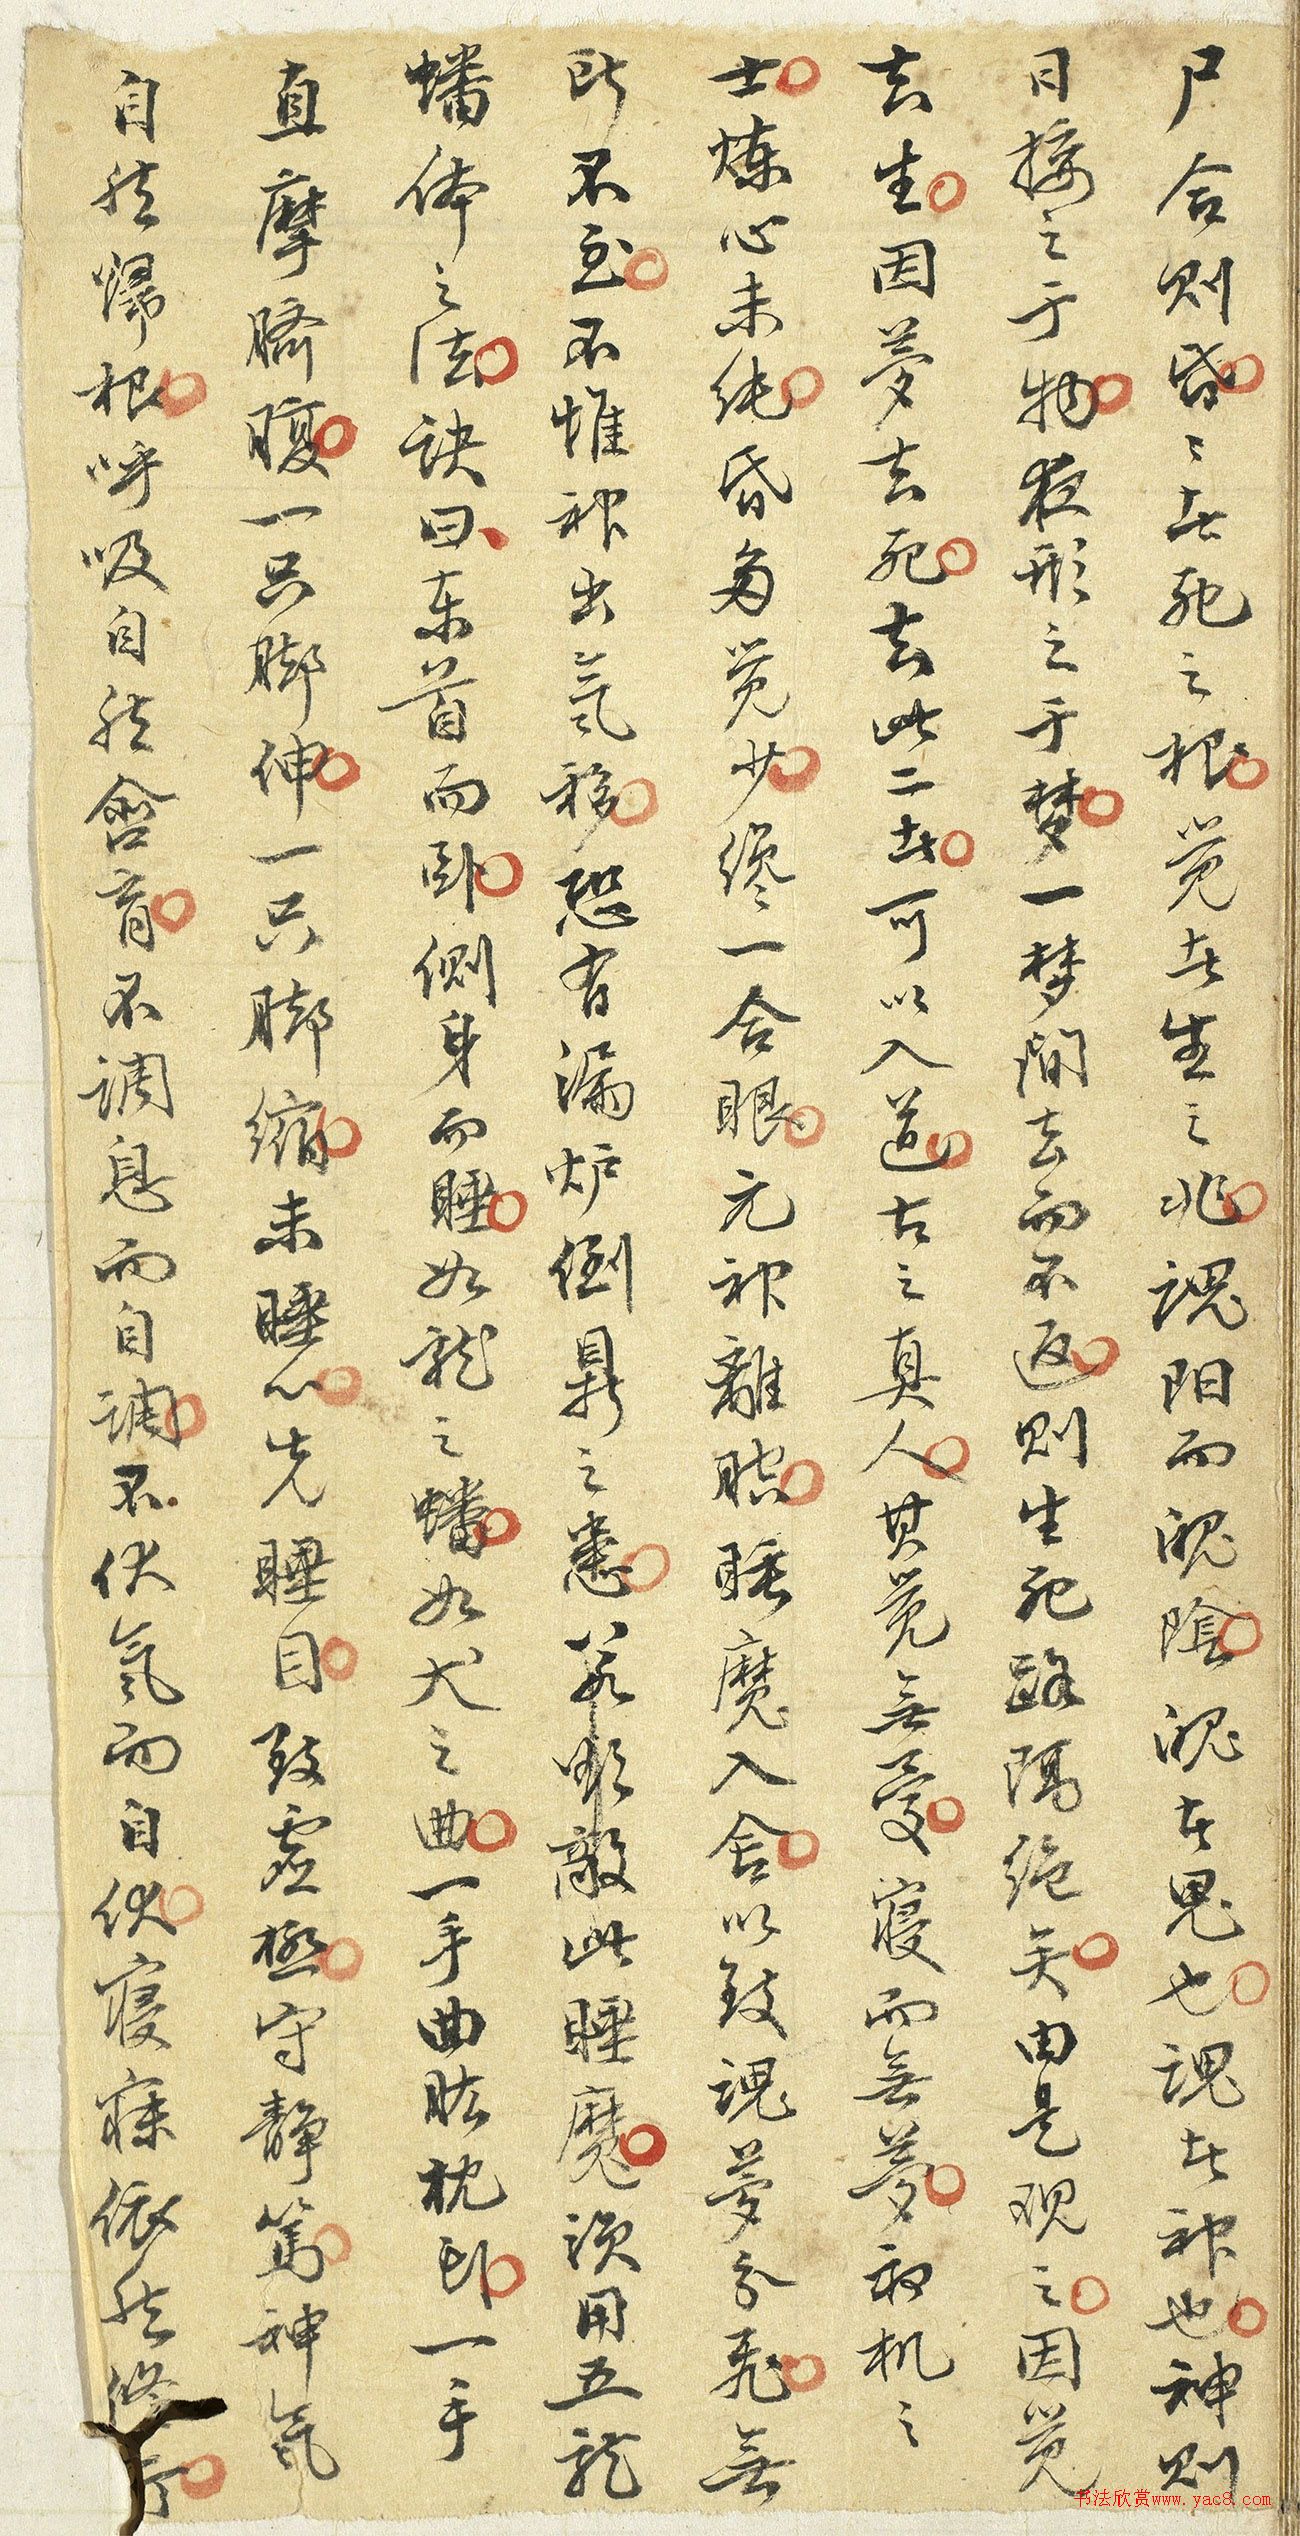 尸合则昏昏者死之根觉者生之兆魂阳而魄阴魄者鬼也魂者神也神则
日接之于物夜形之于梦一梦间去而不返则生死路隔绝矣由是观之因觉
去生因梦去死去此二者可以入道古之真人其觉无忧寝而无梦初机之
士炼心未纯昏多觉少才一合眼元神离腔睡魔入舍以致魂梦分飞无
所不至不惟神出气移恐有漏炉倒鼎之患若欲敌此睡魔须用五龙
蟠体之法诀曰东首而卧侧身而睡如龙之蟠如犬之曲一手曲肱枕印一手
直摩脐腹一只脚伸一只脚缩未睡心先睡目致虚极守静笃神气
自然归根呼吸自然含育不调息而自调不伏气而自伏寝寐依然修行
书法欣赏www.yac8.com